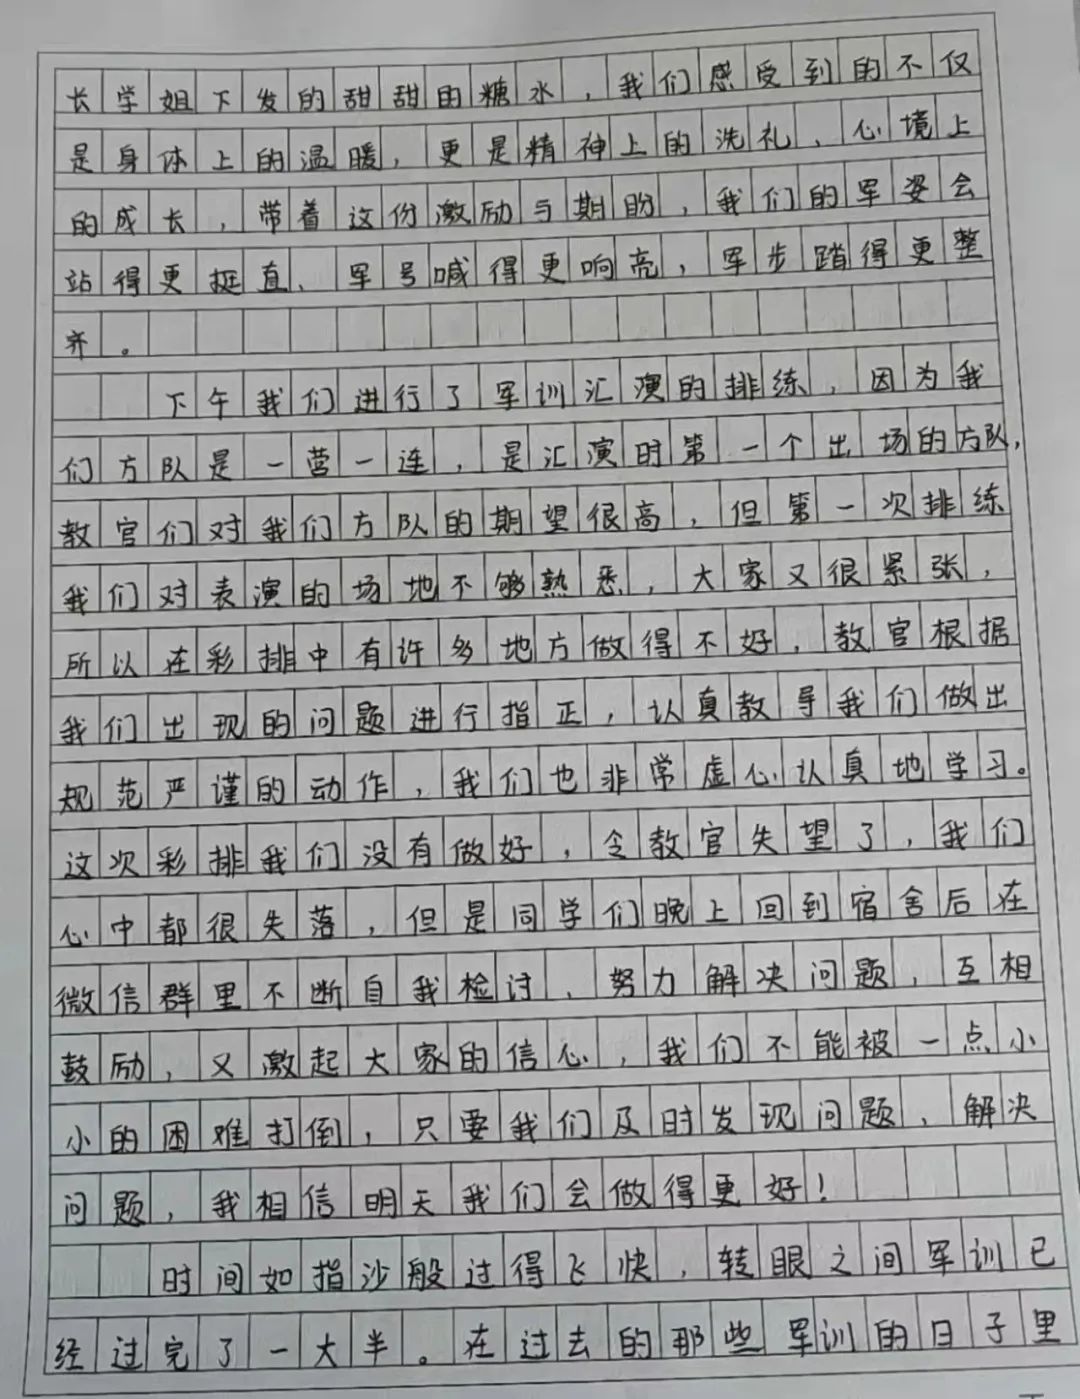 长学姐下发的甜甜的糖水，我们感受到的不仅
是身体上的温暖，更是精神上的洗礼、心境上
的成长，带着这份激励与期盼，我们的军姿会
站得更挺直、军号喊得更响亮，军步踏得更整
齐。
下午我们进行了军训汇演的排练，因为我
们方队是一营一连，是汇演时第一个出场的方队，
教官们对我们方队的期望很高，但第一次排练
我们对表演的场地不够熟悉，大家又很紧张，
所以在彩排中有许多地方做得不好，教官根据
我们出现的问题进行指正，认真教导我们做出
规范严谨的动作，我们也非常虚心认真地学习。
这次彩排我们没有做好，令教官失望了，我们
心中都很失落，但是同学们晚上回到宿舍后在
微信群里不断自我检讨、努力解决问题，互相
鼓励，又激起大家的信心，我们不能被一点小
小的困难打倒，只要我们及时发现问题、解决
问题，我相信明天我们会做得更好！
时间如指沙般过得飞快，转眼之间军训已
经过完了一大半。在过去的那些军训的日子里